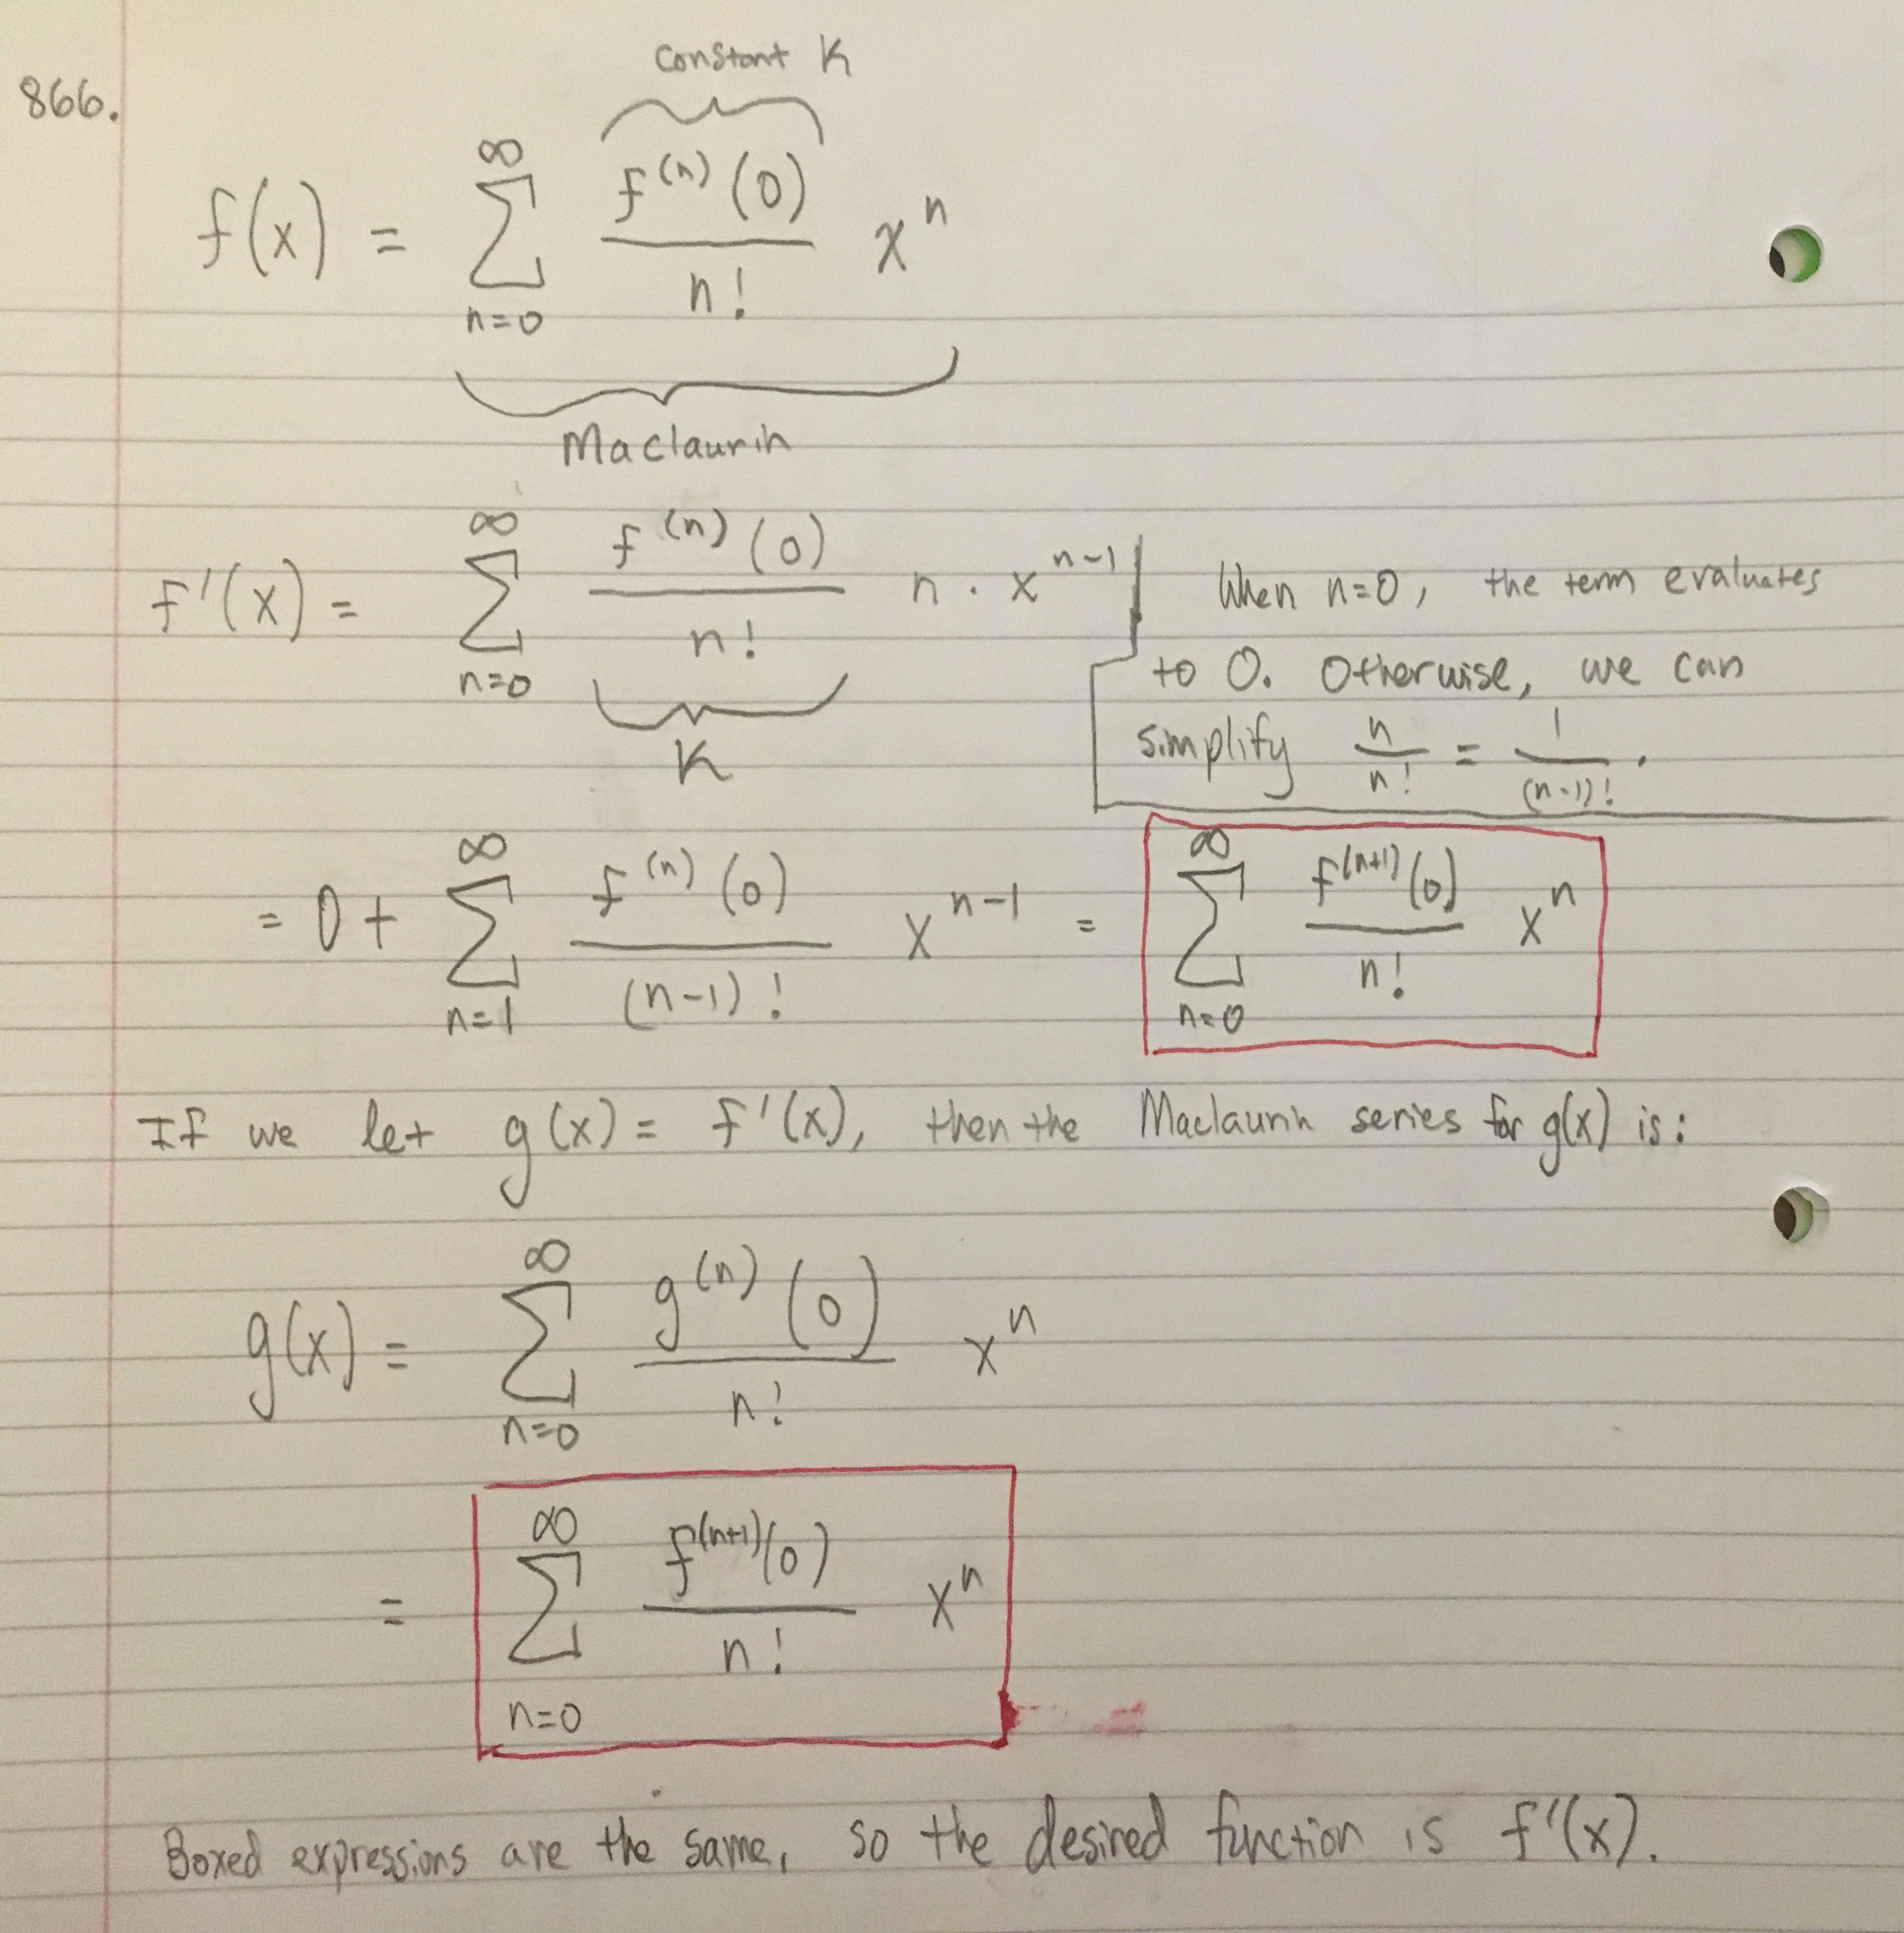 866.
constant K
f(x) = ∑_{n=0}^{∞} \frac{f^{(n)}(0)}{n!} x^n
Maclaurin
f'(x) = ∑_{n=0}^{∞} \frac{f^{(n)}(0)}{n!} n · x^{n-1}
K
When n=0, the term evaluates
to 0. Otherwise, we can
simplify \frac{n}{n!} = \frac{1}{(n-1)!}.
= 0 + ∑_{n=1}^{∞} \frac{f^{(n)}(0)}{(n-1)!} x^{n-1} = ∑_{n=0}^{∞} \frac{f^{(n+1)}(0)}{n!} x^n
If we let g(x) = f'(x), then the Maclaurin series for g(x) is:
g(x) = ∑_{n=0}^{∞} \frac{g^{(n)}(0)}{n!} x^n
= ∑_{n=0}^{∞} \frac{f^{(n+1)}(0)}{n!} x^n
Boxed expressions are the same, so the desired function is f'(x).